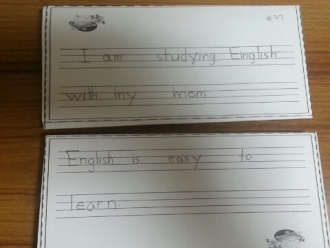 I am studying English
with my mom
English is easy to
learn.